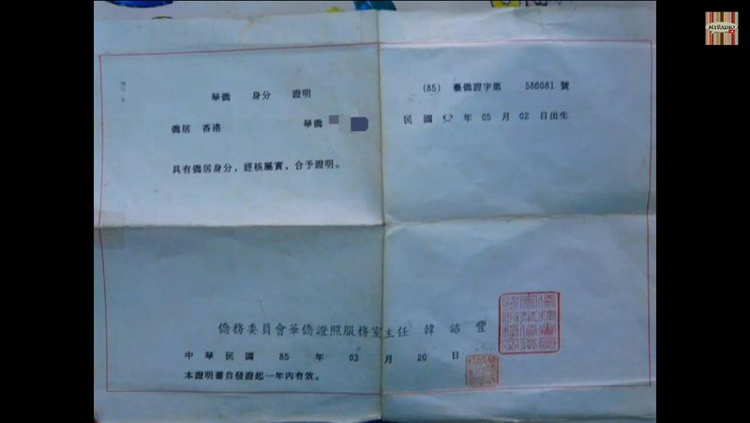 MYRADIO
(85) 臺僑證字第 586081 號
華僑 身分 證明
民國 年 05 月 02 日出生
僑居 香港 華僑
具有僑居身分，經核屬實，合予證明。
僑務委員會華僑證照服務室主任 韓 豐
中華民國 85 年 03 月 20 日
本證明書自發證起一年內有效。